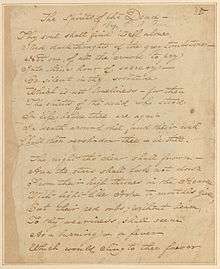 The Spirits of the Dead —
Thy soul shall find itself alone
dark thoughts of the gray tomb-stone
Not one, of all the crowd, to pry
Into thine hour of secrecy:
Be silent in the solitude
Which is not loneliness — for then
The spirits of the dead who stood
In life before thee are again
In death around thee, and their will
Shall then overshadow thee — be still.
The night tho' clear shall frown —
And the stars shall look not down
From their high thrones in the Heaven
With light like Hope to mortals giv'n
But their red orbs, without beam,
To thy weariness shall seem
As a burning & a fever
Which would cling to thee forever